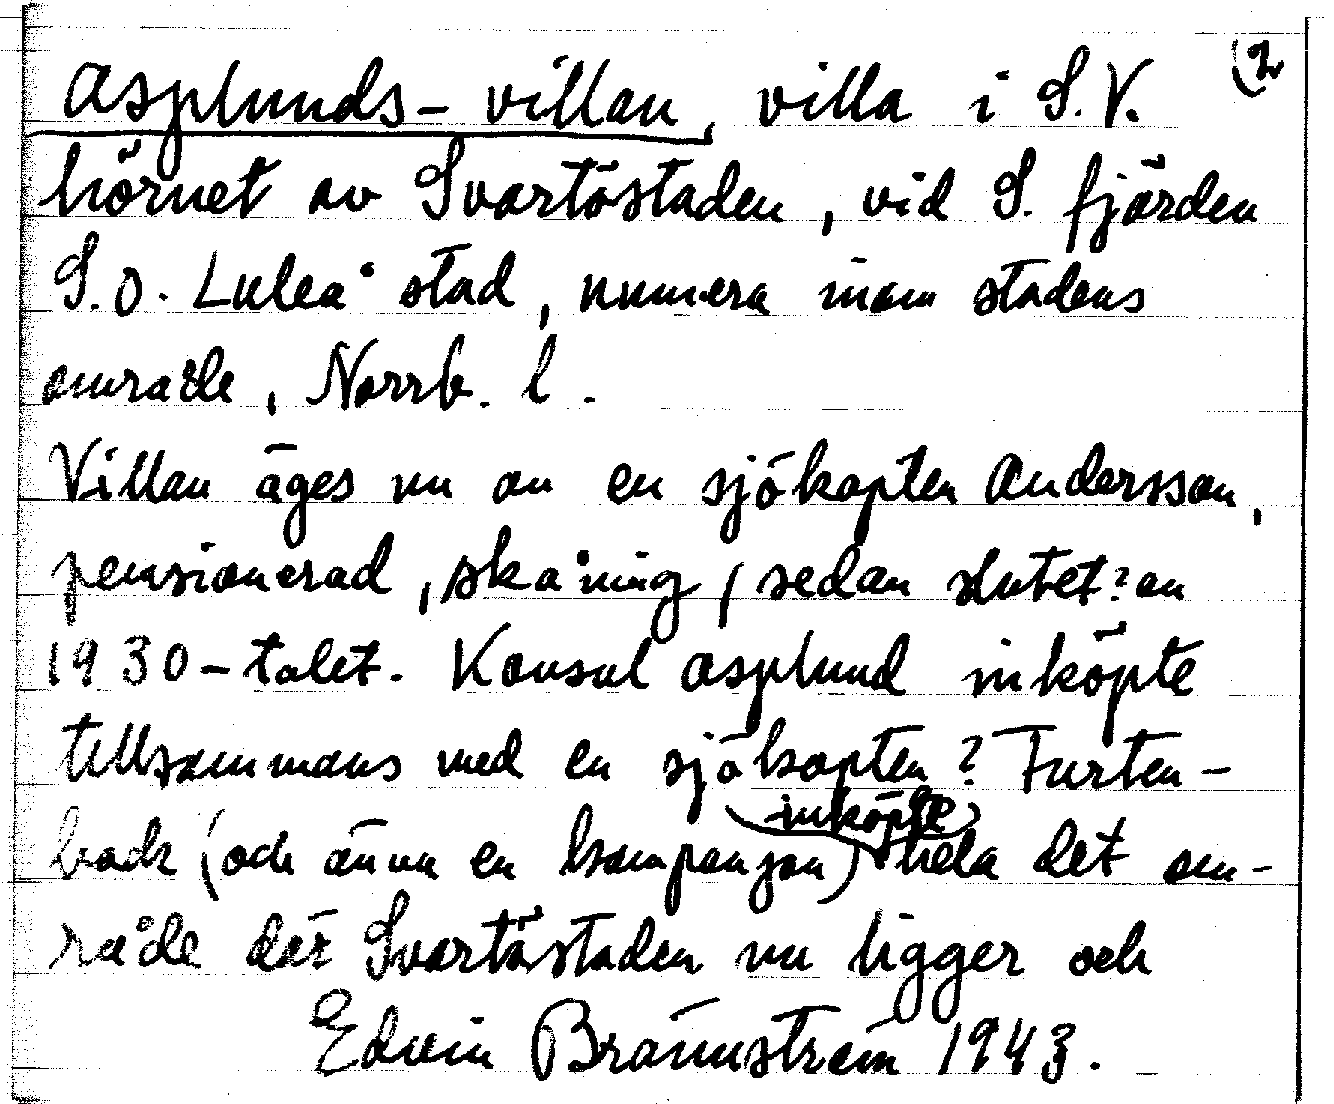 Asplunds-villan, villa i S.V. (2
hörnet av Svartöstaden, vid S. fjärden
S.O. Luleå stad, numera inom stadens
område, Norrb. l.
Villan äges nu av en sjökapten Andersson,
pensionerad, skåning, sedan slutet? av
1930-talet. Konsul Asplund inköpte
tillsammans med en sjökapten? Furten-
inköpte
back (och ännu en kompanjon) hela det om-
råde där Svartöstaden nu ligger och
Edvin Brännström 1943.